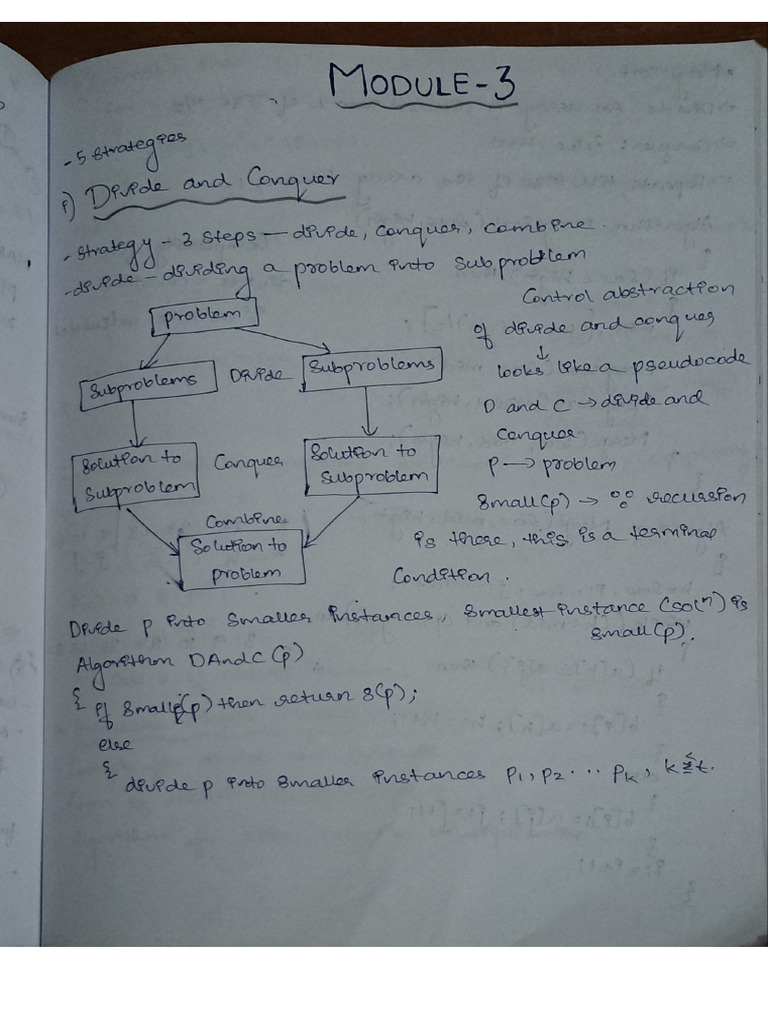 MODULE-3
- 5 strategies
i) Divide and Conquer
- strategy - 3 steps — divide, conquer, combine.
- divide - dividing a problem into subproblem
problem
Subproblems Divide Subproblems
Solution to subproblem Conquer Solution to subproblem
Combine
Solution to problem
Control abstraction
of divide and conquer
↓
looks like a pseudocode
D and C → divide and
conquer
P → problem
Small(p) → ∵ recursion
is there, this is a terminal
Condition.
Divide p into smaller instances, smallest instance (soln) is
small(p).
Algorithm DAndC(p)
{ if small(p) then return s(p);
else
{ divide p into smaller instances P1, P2 ... Pk, k